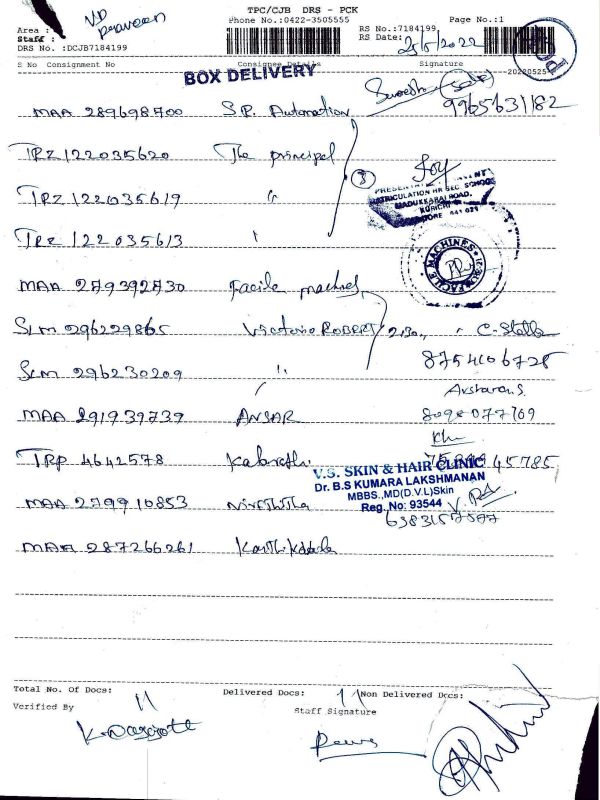 TPC/CJB DRS - PCK
Phone No.:0422-3505555 Page No.:1
Area : VD
Staff : praveen
RS No.:7184199
DRS No. :DCJB7184199 RS Date: 25/5/2022
S No Consignment No Consignee Details Signature 20220525
BOX DELIVERY
MAA 289698700 S.P. Automation Suresh 9965631182
TRZ 122035620 The principal
TRZ 122035619 "
MATRICULATION HR SEC. SCHOOL
MADUKKARAI ROAD,
KURICHI
COIMBATORE 641 021
TRZ 122035613 "
MAA 279392730 Facile machines
FACILE MACHINES
SLM 296229865 Victoria ROBERT
8754106725
SLM 296230209 "
MAA 291939739 ANSAR
TRP 4642578
V.S. SKIN & HAIR CLINIC
Dr. B.S KUMARA LAKSHMANAN
MBBS.,MD(D.V.L)Skin
Reg. No: 93544
MAA 279910853 Nivethitha
6383157577
MAA 287266261
Total No. Of Docs: 11 Delivered Docs: 11 Non Delivered Docs:
Verified By Staff Signature